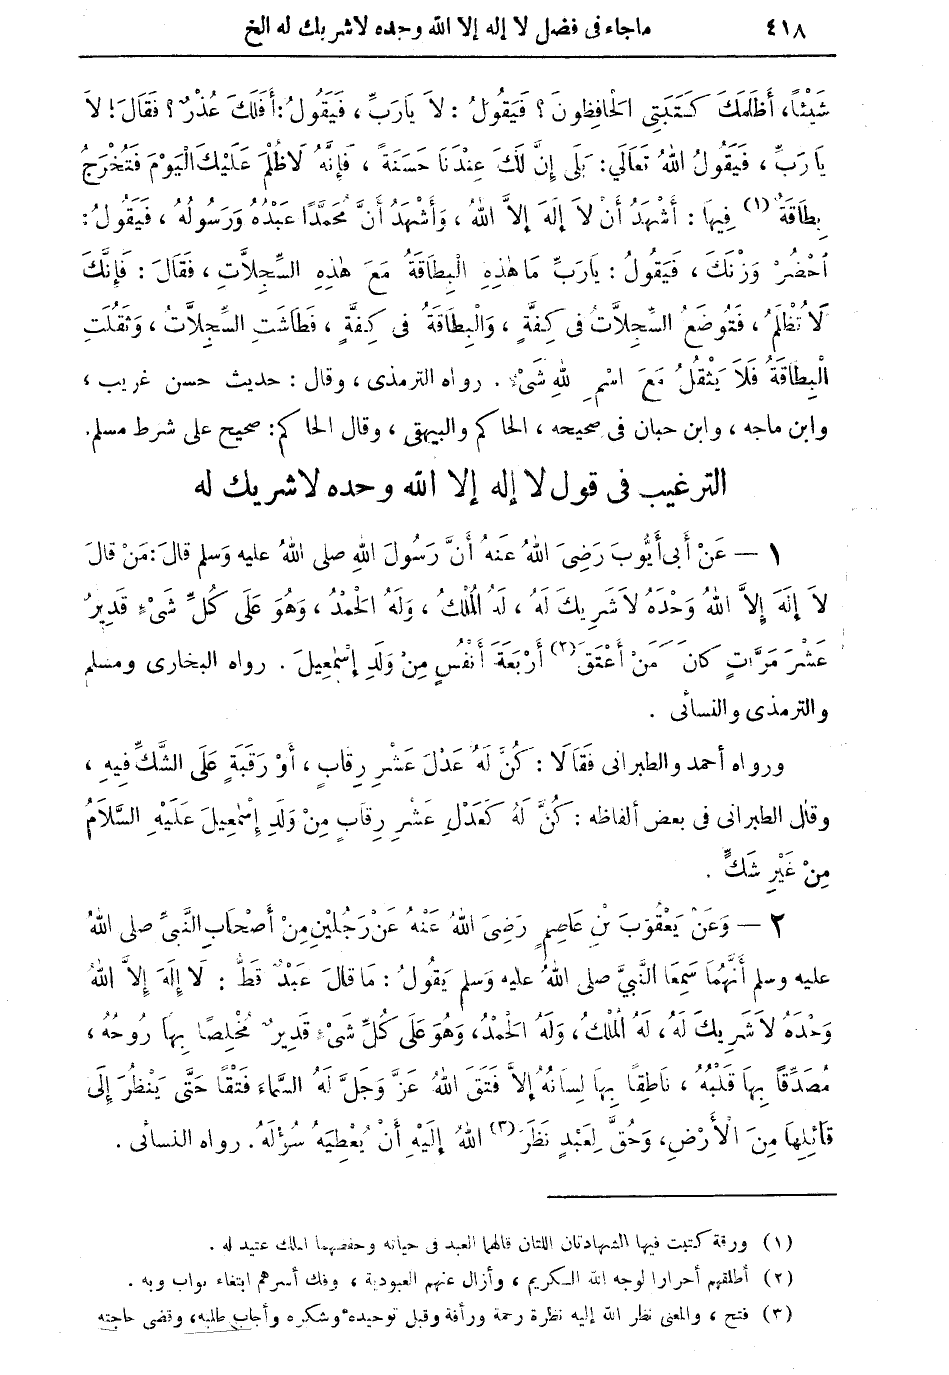 ٤١٨ ماجاء فى فضل لا إله إلا الله وحده لاشريك له الخ
شَيْئاً، أَظَلَمَكَ كَتَبَتِى الْحَافِظُونَ؟ فَيَقُولُ: لاَ يَارَبِّ، فَيَقُولُ: أَفَلَكَ عُذْرٌ؟ فَقَالَ: لاَ
يَارَبِّ، فَيَقُولُ اللهُ تَعَالَي: بَلَى إِنَّ لَكَ عِنْدَنَا حَسَنَةً، فَإِنَّهُ لَاظُلْمَ عَلَيْكَ الْيَوْمَ فَتُخْرَجُ
بِطَاقَةٌ (١) فِيهَا: أَشْهَدُ أَنْ لاَ إِلَهَ إِلاَّ اللهُ، وَأَشْهَدُ أَنَّ مُحَمَّدًا عَبْدُهُ وَرَسُولُهُ، فَيَقُولُ:
اُحْضُرْ وَزْنَكَ، فَيَقُولُ: يَارَبِّ مَا هٰذِهِ الْبِطَاقَةُ مَعَ هٰذِهِ السِّجِلاَّتِ، فَقَالَ: فَإِنَّكَ
لَا تُظْلَمُ، فَتُوضَعُ السِّجِلاَّتُ فى كِفَّةٍ، وَالْبِطَاقَةُ فى كِفَّةٍ، فَطَاشَتِ السِّجِلاَّتُ، وَثَقُلَتِ
الْبِطَاقَةُ فَلَا يَثْقُلُ مَعَ اسْمِ للهِ شَىْءٌ. رواه الترمذى، وقال: حديث حسن غريب،
وابن ماجه، وابن حبان فى صحيحه، الحاكم والبيهقى، وقال الحاكم: صحيح على شرط مسلم.
الترغيب فى قول لا إله إلا الله وحده لاشريك له
١ — عَنْ أَبى أَيُّوبَ رَضِىَ اللهُ عَنهُ أَنَّ رَسُولَ اللهِ صلى اللهُ عليه وَسلم قالَ: مَنْ قالَ
لاَ إِلَهَ إِلاَّ اللهُ وَحْدَهُ لاَ شَرِيكَ لَهُ، لَهُ الْمُلْكُ، وَلَهُ الْحَمْدُ، وَهُوَ عَلَى كُلِّ شَىْءٍ قَدِيرٌ
عَشْرَ مَرَّاتٍ كانَ كَمَنْ أَعْتَقَ (٢) أَرْبَعَةَ أَنْفُسٍ مِنْ وَلَدِ إِسْمٰعِيلَ. رواه البخارى ومسلم
والترمذى والنسائى.
ورواه أحمد والطبرانى فَقَالَا: كُنَّ لَهُ عَدْلَ عَشْرِ رِقَابٍ، أَوْ رَقَبَةٍ عَلَى الشَّكِّ فِيهِ،
وقال الطبرانى فى بعض ألفاظه: كُنَّ لَهُ كَعَدْلِ عَشْرِ رِقَابٍ مِنْ وَلَدِ إِسْمٰعِيلَ عَلَيْهِ السَّلَامُ
مِنْ غَيْرِ شَكٍّ.
٢ — وَعَنْ يَعْقُوبَ بْنِ عَاصِمٍ رَضِىَ اللهُ عَنْهُ عَنْ رَجُلَيْنِ مِنْ أَصْحَابِ النَّبىِّ صلى اللهُ
عليه وسلم أَنَّهُمَا سَمِعَا النَّبىَّ صلى اللهُ عليه وَسلم يَقُولُ: مَا قالَ عَبْدٌ قَطُّ: لَا إِلَهَ إِلاَّ اللهُ
وَحْدَهُ لاَ شَرِيكَ لَهُ، لَهُ الْمُلْكُ، وَلَهُ الْحَمْدُ، وَهُوَ عَلَى كُلِّ شَىْءٍ قَدِيرٌ مُخْلِصًا بِهَا رُوحُهُ،
مُصَدِّقًا بِهَا قَلْبُهُ، نَاطِقًا بِهَا لِسَانُهُ إِلاَّ فَتَقَ اللهُ عَزَّ وَجَلَّ لَهُ السَّمَاءَ فَتْقًا حَتَّى يَنْظُرَ إِلَى
قَائِلِهَا مِنَ الْأَرْضِ، وَحُقَّ لِعَبْدٍ نَظَرَ (٣) اللهُ إِلَيْهِ أَنْ يُعْطِيَهُ سُؤْلَهُ. رواه النسائى.
(١) ورقة كتبت فيها الشهادتان اللتان قالهما العبد فى حياته وحفضهما الملك عتيد له.
(٢) أطلقهم أحرارا لوجه الله الكريم، وأزال عنهم العبودية، وفك أسرهم ابتغاء ثواب وبه.
(٣) فتح، والمعنى نظر الله إليه نظرة رحمة ورأفة وقبل توحيده وشكره وأجاب طلبه، وقضى حاجته